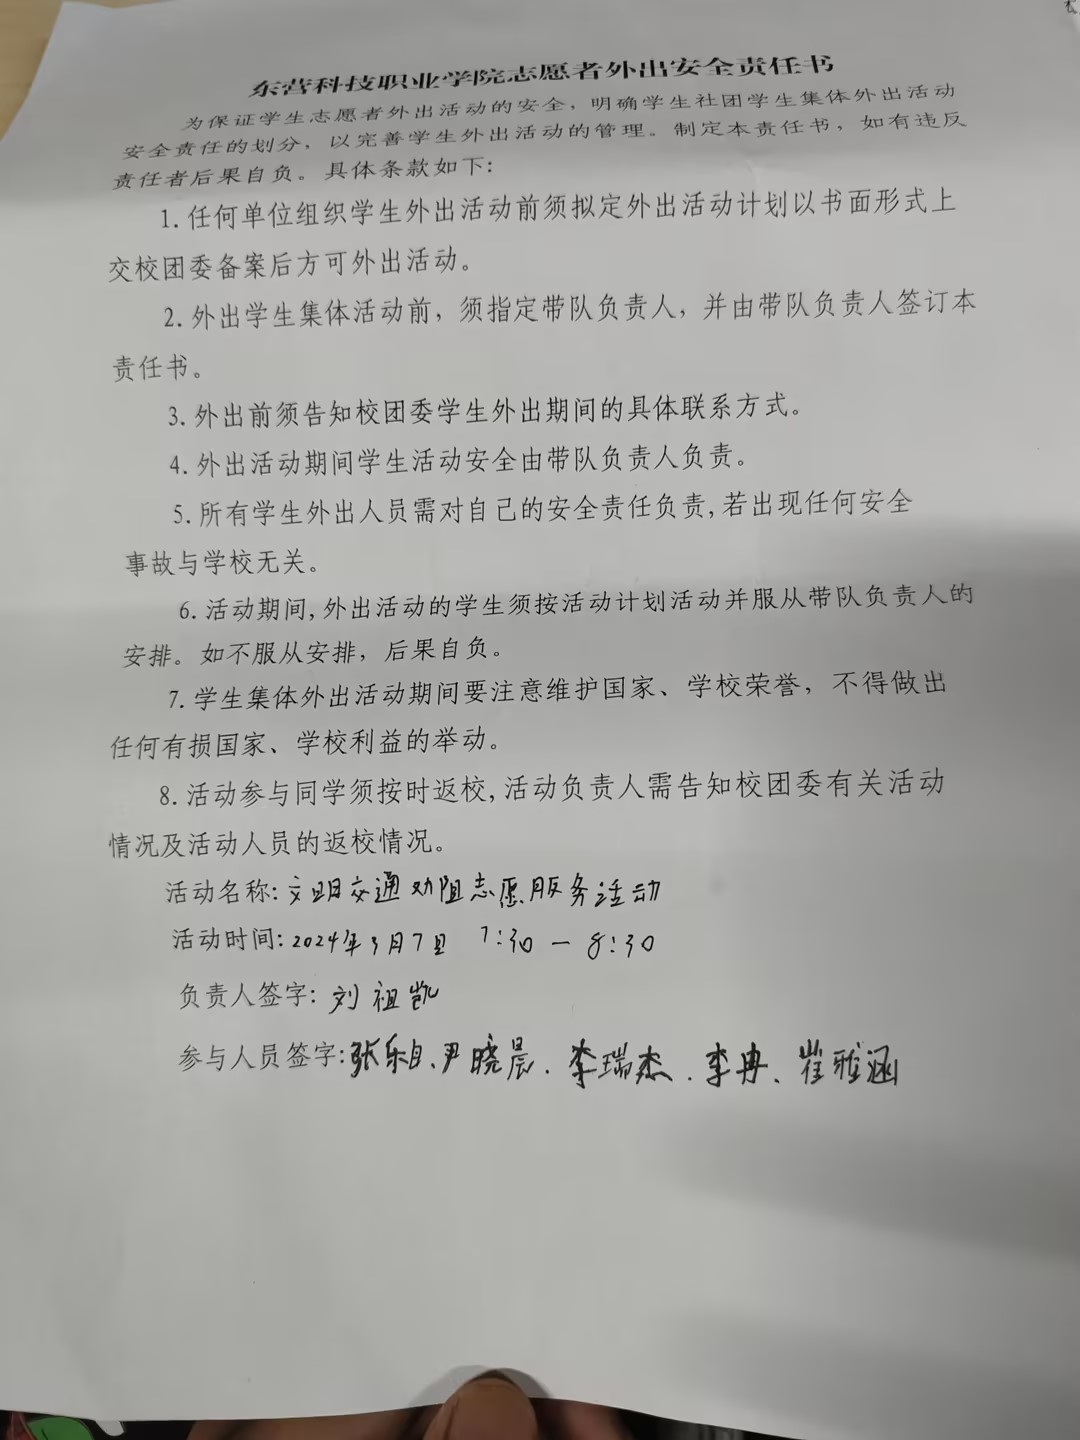 东营科技职业学院志愿者外出安全责任书
为保证学生志愿者外出活动的安全，明确学生社团学生集体外出活动
安全责任的划分，以完善学生外出活动的管理。制定本责任书，如有违反
责任者后果自负。具体条款如下：
1.任何单位组织学生外出活动前须拟定外出活动计划以书面形式上
交校团委备案后方可外出活动。
2.外出学生集体活动前，须指定带队负责人，并由带队负责人签订本
责任书。
3.外出前须告知校团委学生外出期间的具体联系方式。
4.外出活动期间学生活动安全由带队负责人负责。
5.所有学生外出人员需对自己的安全责任负责,若出现任何安全
事故与学校无关。
6.活动期间,外出活动的学生须按活动计划活动并服从带队负责人的
安排。如不服从安排，后果自负。
7.学生集体外出活动期间要注意维护国家、学校荣誉，不得做出
任何有损国家、学校利益的举动。
8.活动参与同学须按时返校,活动负责人需告知校团委有关活动
情况及活动人员的返校情况。
活动名称:文明交通劝阻志愿服务活动
活动时间:2024年3月7日 7:30—8:30
负责人签字:刘祖凯
参与人员签字:张、尹晓晨、李瑞杰、李冉、崔雅涵